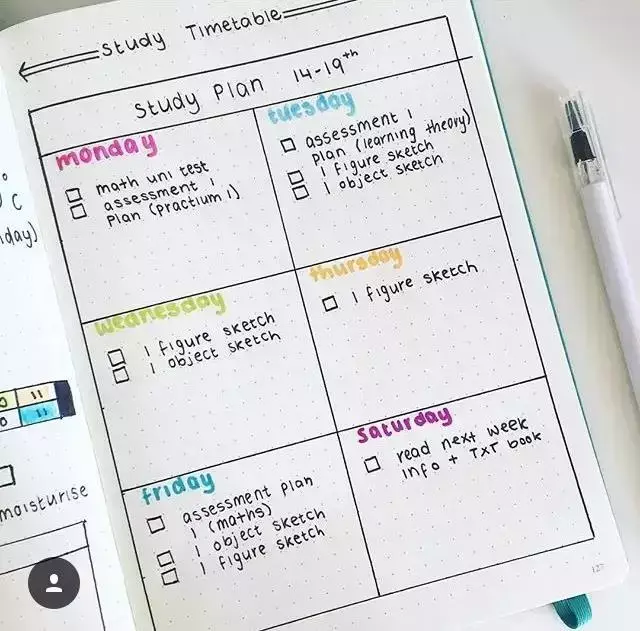 Study Timetable
Study Plan 14-19th
monday
math uni test
assessment 1
Plan (practium 1)
tuesday
assessment 1
Plan (learning theory)
1 figure sketch
1 object sketch
wednesday
1 figure sketch
1 object sketch
thursday
1 figure sketch
friday
assessment plan
1 (maths)
1 object sketch
1 figure sketch
saturday
read next week
info + TxT book
C
day)
11
11
moisturise
127